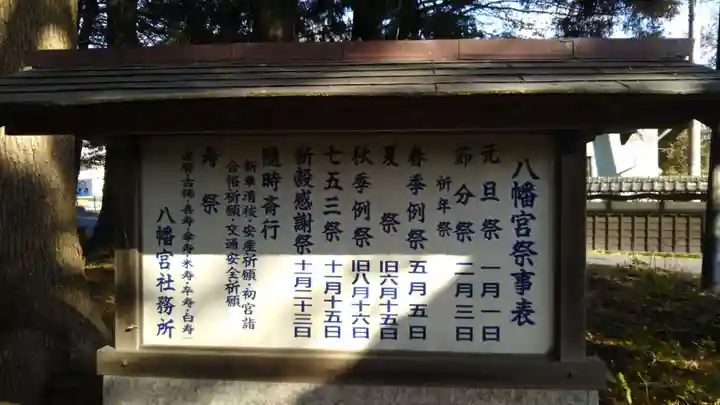 八幡宮祭事表
元旦祭 一月一日
節分祭 二月三日
祈年祭
春季例祭 五月五日
夏祭 旧六月十五日
秋季例祭 旧八月十六日
七五三祭 十一月十五日
新穀感謝祭 十一月二十三日
随時斎行
新車清祓・安産祈願・初宮詣
合格祈願・交通安全祈願
寿祭
還暦・古稀・喜寿・傘寿・米寿・卒寿・白寿
八幡宮社務所